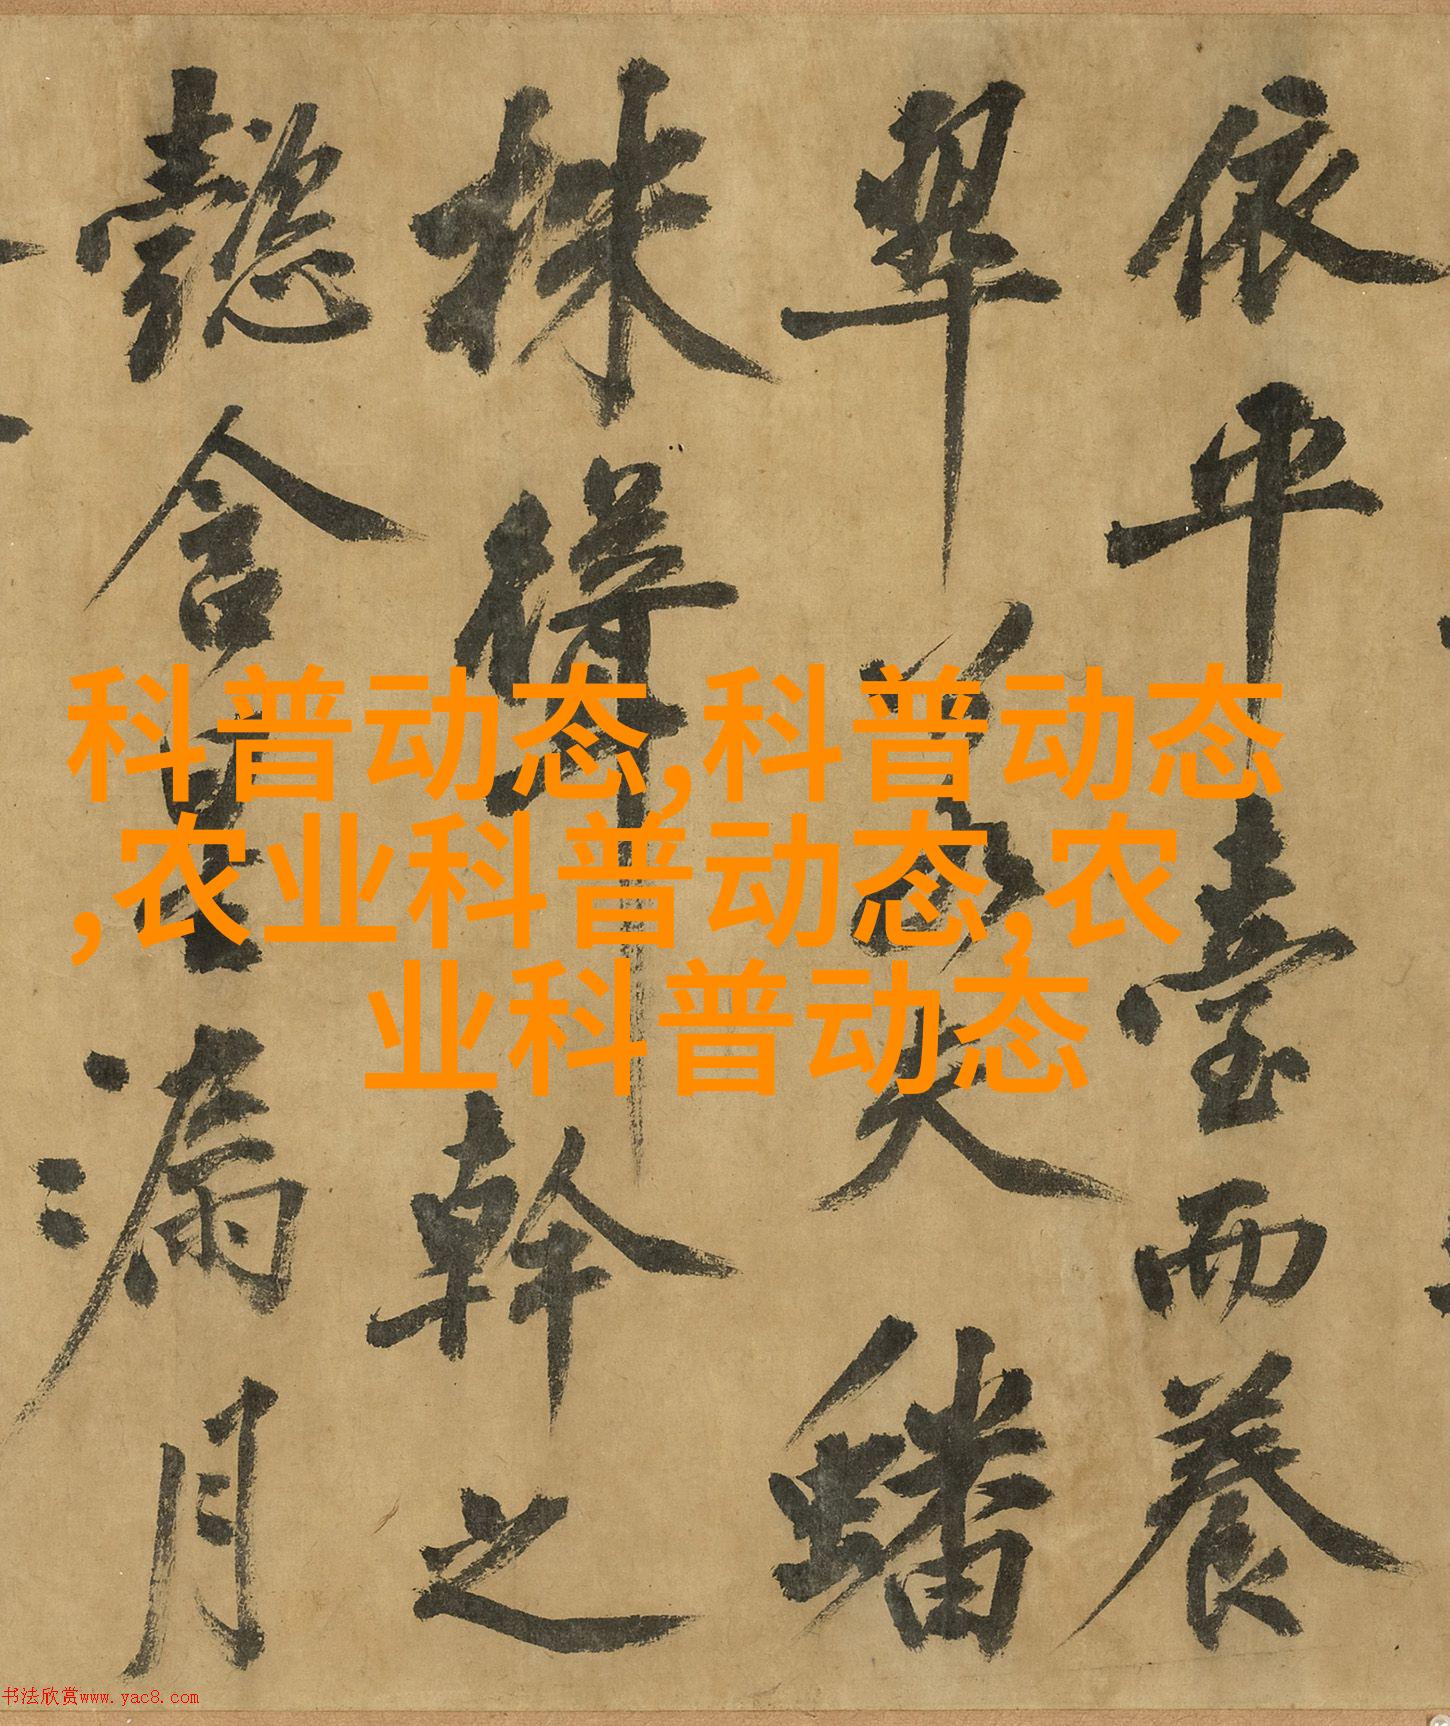 科普动态,科普动态
,农业科普动态,农
业科普动态
依平臺而養
翠若夫蟠
株幹之
懿含星漏月
书法欣赏www.yac8.com